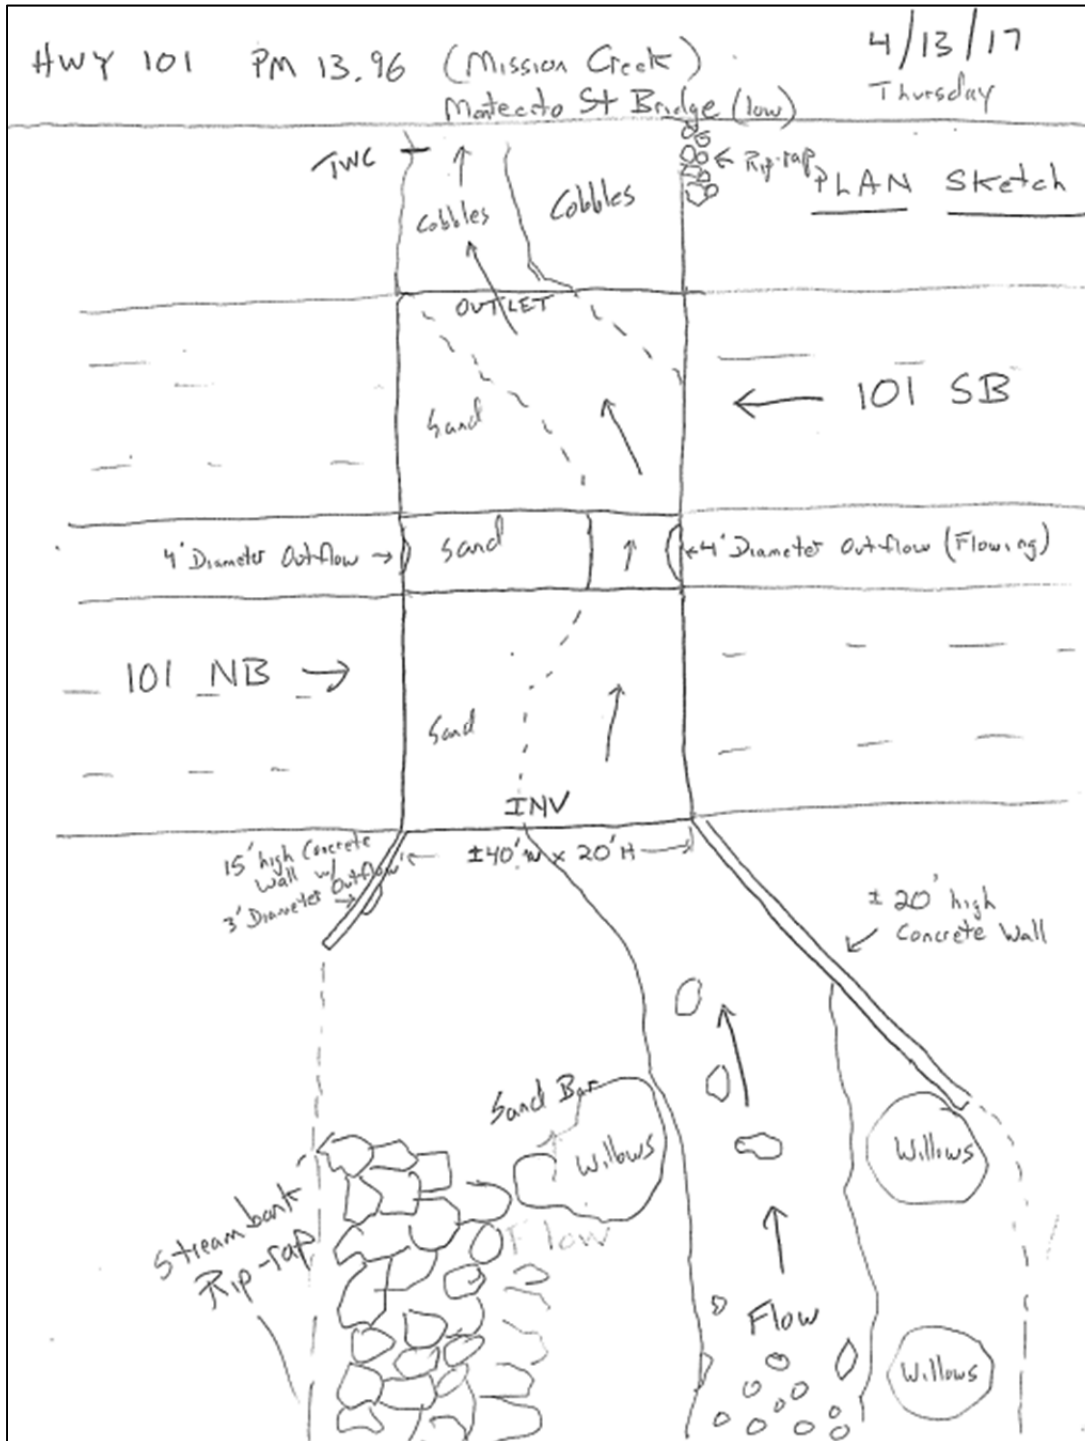 HWY 101 PM 13.96 (Mission Creek)
4/13/17
Montecito St Bridge (low)
Thursday
TWC
Rip-rap
PLAN Sketch
Cobbles
Cobbles
OUTLET
101 SB
Sand
4' Diameter Outflow
Sand
4' Diameter Outflow (Flowing)
101 NB
Sand
INV
±40' W x 20' H
15' high Concrete
Wall w/
3' Diameter Outflow
± 20' high
Concrete Wall
Sand Bar
Willows
Willows
Streambank
Rip-rap
Flow
Flow
Willows